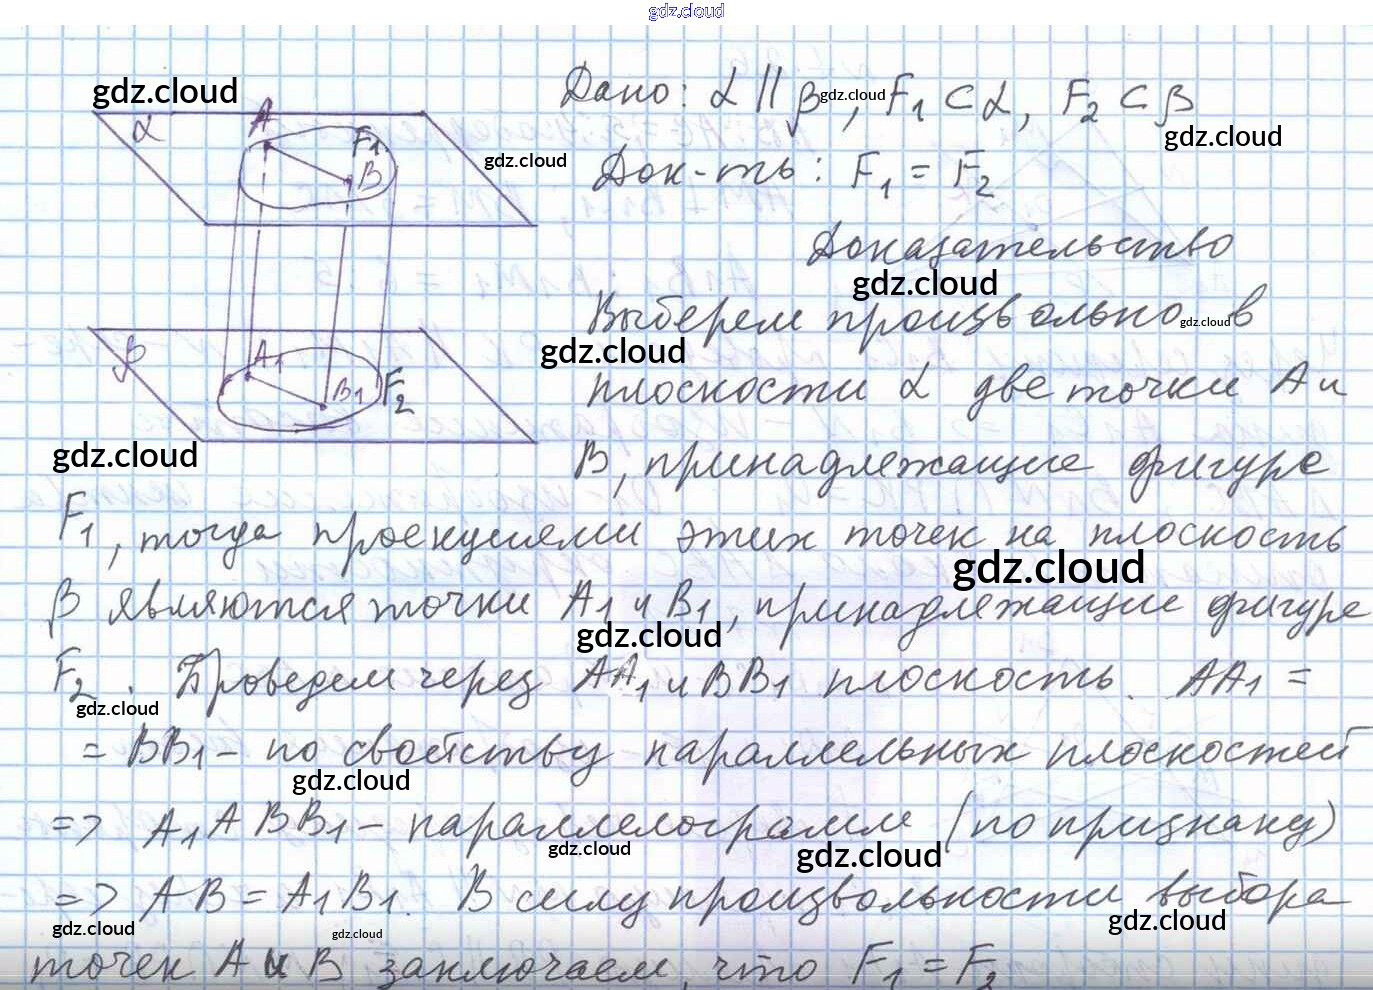 gdz.cloud
gdz.cloud
Дано: α || β, F₁ ⊂ α, F₂ ⊂ β
gdz.cloud
gdz.cloud
A
α
F₁
B
gdz.cloud
Док-ть: F₁ = F₂
Доказательство
gdz.cloud
Выберем произвольно в
gdz.cloud
gdz.cloud
β
A₁
B₁
F₂
плоскости α две точки A и
gdz.cloud
B, принадлежащие фигуре
F₁, тогда проекциями этих точек на плоскость
gdz.cloud
β являются точки A₁ и B₁, принадлежащие фигуре
gdz.cloud
F₂. Проведем через AA₁ и BB₁ плоскость. AA₁ =
gdz.cloud
= BB₁ – по свойству параллельных плоскостей
gdz.cloud
=> A₁ABB₁ – параллелограмм (по признаку)
gdz.cloud
gdz.cloud
=> AB = A₁B₁. В силу произвольности выбора
gdz.cloud
gdz.cloud
gdz.cloud
точек A и B заключаем, что F₁ = F₂